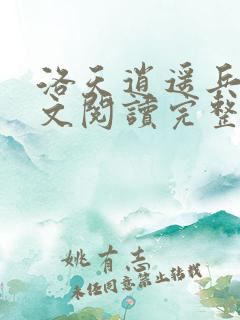 洛天逍遥兵
文閱讀完整
姚有志
未经同意禁止转载